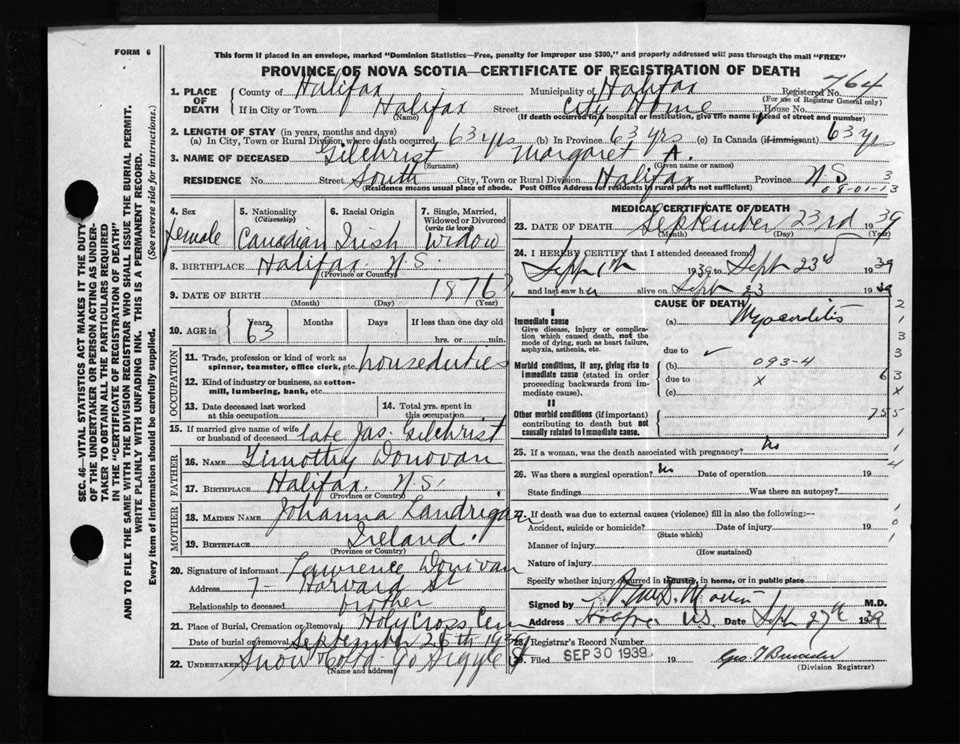 FORM 6
This form if placed in an envelope, marked "Dominion Statistics—Free, penalty for improper use $300," and properly addressed will pass through the mail "FREE"
PROVINCE OF NOVA SCOTIA—CERTIFICATE OF REGISTRATION OF DEATH
SEC. 46—VITAL STATISTICS ACT MAKES IT THE DUTY
OF THE UNDERTAKER OR PERSON ACTING AS UNDER-
TAKER TO OBTAIN ALL THE PARTICULARS REQUIRED
IN THE "CERTIFICATE OF REGISTRATION OF DEATH"
AND TO FILE THE SAME WITH THE DIVISION REGISTRAR WHO SHALL ISSUE THE BURIAL PERMIT.
WRITE PLAINLY WITH UNFADING INK. THIS IS A PERMANENT RECORD.
Every item of information should be carefully supplied. (See reverse side for instructions.)
1. PLACE OF DEATH County of Halifax Municipality of Halifax Registered No. 764
(For use of Registrar General only)
If in City or Town Halifax Street City Home House No.
(Name) (If death occurred in a hospital or institution, give the name instead of street and number)
2. LENGTH OF STAY (in years, months and days)
(a) In City, Town or Rural Division where death occurred 63 yrs (b) In Province 63 yrs (c) In Canada (if immigrant) 63 yrs
3. NAME OF DECEASED Gilchrist Margaret A.
(Surname) (Given name or names)
RESIDENCE No. Street South City, Town or Rural Division Halifax Province N.S. 3
(Residence means usual place of abode. Post Office Address for residents in rural parts not sufficient) 08-01-13
4. Sex 5. Nationality (Citizenship) 6. Racial Origin 7. Single, Married, Widowed or Divorced (write the word)
Female Canadian Irish Widow
8. BIRTHPLACE Halifax N.S.
(Province or Country)
9. DATE OF BIRTH 1876
(Month) (Day) (Year)
10. AGE in Years Months Days If less than one day old
63 hrs. or min.
OCCUPATION
11. Trade, profession or kind of work as spinner, teamster, office clerk, etc. houseduties
12. Kind of industry or business, as cotton-mill, lumbering, bank, etc.
13. Date deceased last worked at this occupation 14. Total yrs. spent in this occupation
15. If married give name of wife or husband of deceased late Jas. Gilchrist
FATHER
16. NAME Timothy Donovan
17. BIRTHPLACE Halifax N.S.
(Province or Country)
MOTHER
18. MAIDEN NAME Johanna Landrigan
19. BIRTHPLACE Ireland
(Province or Country)
20. Signature of informant Lawrence Donovan
Address 7- Harvard St
Relationship to deceased brother
21. Place of Burial, Cremation or Removal Holy Cross Cem
Date of burial or removal September 26th 1939
22. UNDERTAKER Snow & Co Ltd 90 Argyle St
(Name and address)
MEDICAL CERTIFICATE OF DEATH
23. DATE OF DEATH September 23rd 1939
(Month) (Day) (Year)
24. I HEREBY CERTIFY that I attended deceased from
Sept 1939 to Sept 23d 1939
and last saw her alive on Sept 23 1939
CAUSE OF DEATH
I
Immediate cause
Give disease, injury or complication which caused death, not the mode of dying, such as heart failure, asphyxia, asthenia, etc.
(a) Myocarditis
due to
Morbid conditions, if any, giving rise to immediate cause (stated in order proceeding backwards from immediate cause)
(b) 093-4
due to x
(c)
II
Other morbid conditions (if important) contributing to death but not causally related to immediate cause.
755
25. If a woman, was the death associated with pregnancy? No
26. Was there a surgical operation? No Date of operation 19
State findings Was there an autopsy?
27. If death was due to external causes (violence) fill in also the following:—
Accident, suicide or homicide? Date of injury 19
(State which)
Manner of injury
(How sustained)
Nature of injury
Specify whether injury occurred in industry, in home, or in public place
Signed by M.D.
Address N.S. Date Sept 27th 1939
28. Registrar's Record Number
29. Filed SEP 30 1939 19
(Division Registrar)